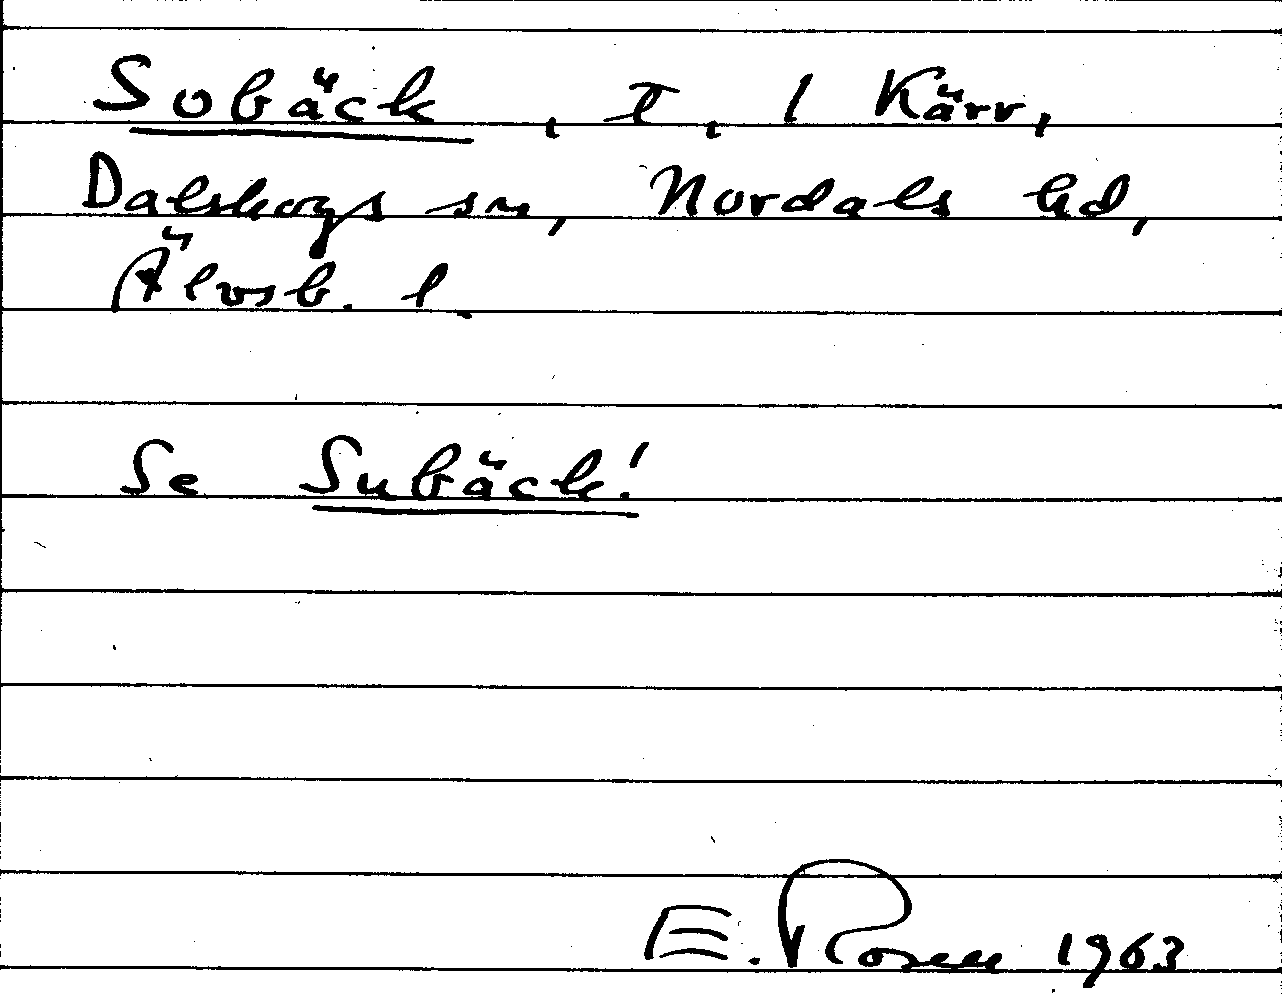 Sobäck, t, 1 Kärr,
Dalskogs sn, Nordals hd,
Älvsb. l.
Se Subäck!
E. Rosen 1963